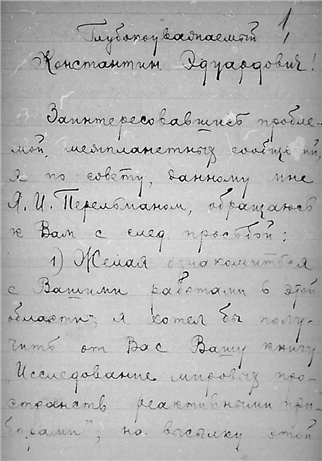 1,
Глубокоуважаемый
Константин Эдуардович!
Заинтересовавшись пробле-
мой межпланетных сообщений,
я по совету, данному мне
Я. И. Перельманом, обращаюсь
к Вам с след. просьбой:
1) Желая ознакомиться
с Вашими работами в этой
области, я хотел бы полу-
чить от Вас Вашу книгу
„Исследование мировых про-
странств реактивными при-
борами", на высылку этой